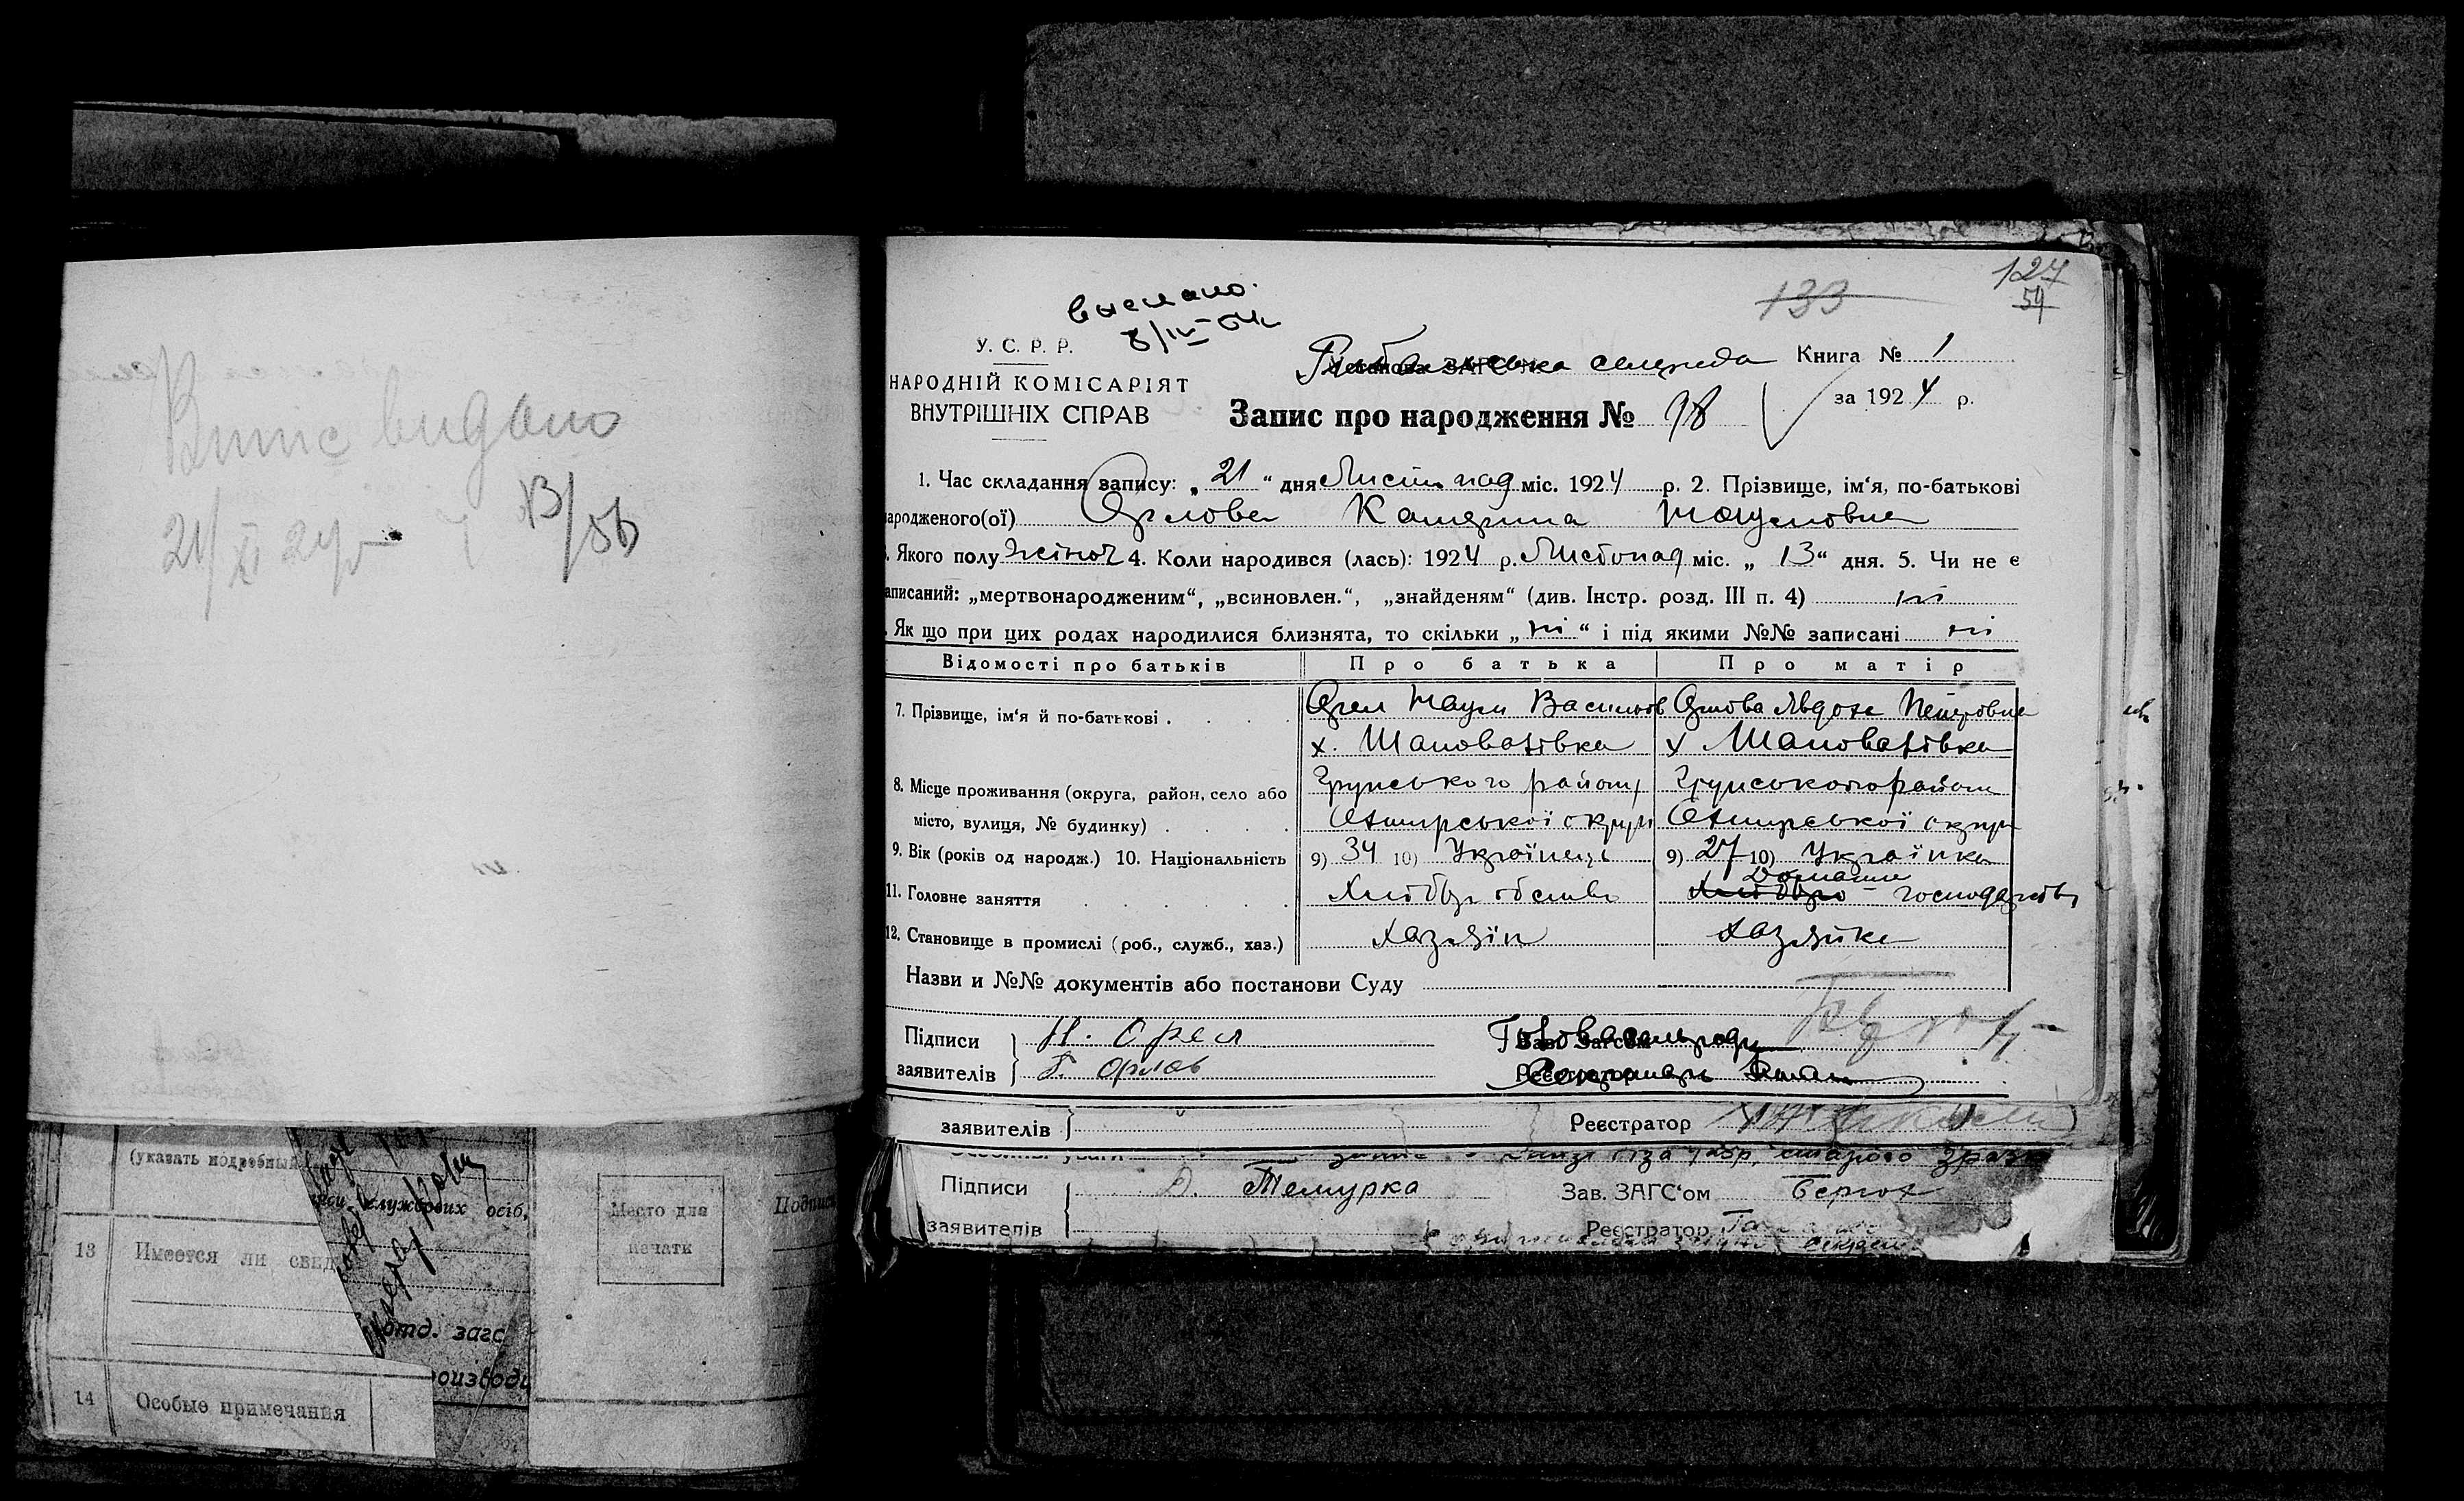 Випис видано
21/XI 24р
133
127
54
У. С. Р. Р.
НАРОДНІЙ КОМІСАРІЯТ
ВНУТРІШНІХ СПРАВ
сельрада Книга № 1
за 1924 р.
Запис про народження № 98
1. Час складання запису: „21“ дня Листопад міс. 1924 р. 2. Прізвище, ім‘я, по-батькові
народженого(ої) Орлова Катерина Наумовна
Якого полу жіноч 4. Коли народився (лась): 1924 р. Листопад міс. „13“ дня. 5. Чи не є
аписаний: „мертвонародженим“, „всиновлен.“, „знайденям“ (див. Інстр. розд. III п. 4) ні
Як що при цих родах народилися близнята, то скільки „ні“ і під якими №№ записані ні
Відомості про батьків Про батька Про матір
7. Прізвище, ім‘я й по-батькові Орел Наум Васильов Орлова Явдоха Петровна
х. Шаповалівка х Шаповалівка
8. Місце проживання (округа, район, село або Грунського району Грунського району
місто, вулиця, № будинку) Охтирської округи Охтирської округи
9. Вік (років од народж.) 10. Національність 9) 34 10) Українець 9) 27 10) Українка
Домашне
11. Головне заняття Хліборобство господарство
12. Становище в промислі (роб., служб., хаз.) Хазяїн Хазяйка
Назви и №№ документів або постанови Суду
Підписи Н. Орел Голова сельради
заявителів Орлов Секретарь
заявителів Реєстратор
Підписи Зав. ЗАГС‘ом
заявителів Реєстратор
(указать подробный
службових осіб,
13 Имеется ли свид
отд. загс
14 Особые примечания
Место для
печати
Подпис